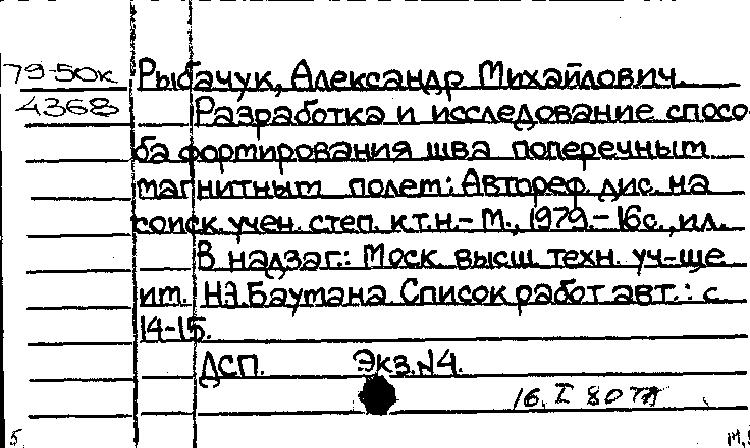 79-50к Рыбачук, Александр Михайлович.
4368 Разработка и исследование спосо-
ба формирования шва поперечным
магнитным полем: Автореф. дис. на
соиск. учен. степ. к.т.н. - М., 1979. - 16с., ил.
В надзаг.: Моск. высш. техн. уч-ще
им. Н.Э. Баумана Список работ авт.: с.
14-15.
ДСП. Экз. №4.
16. I 80